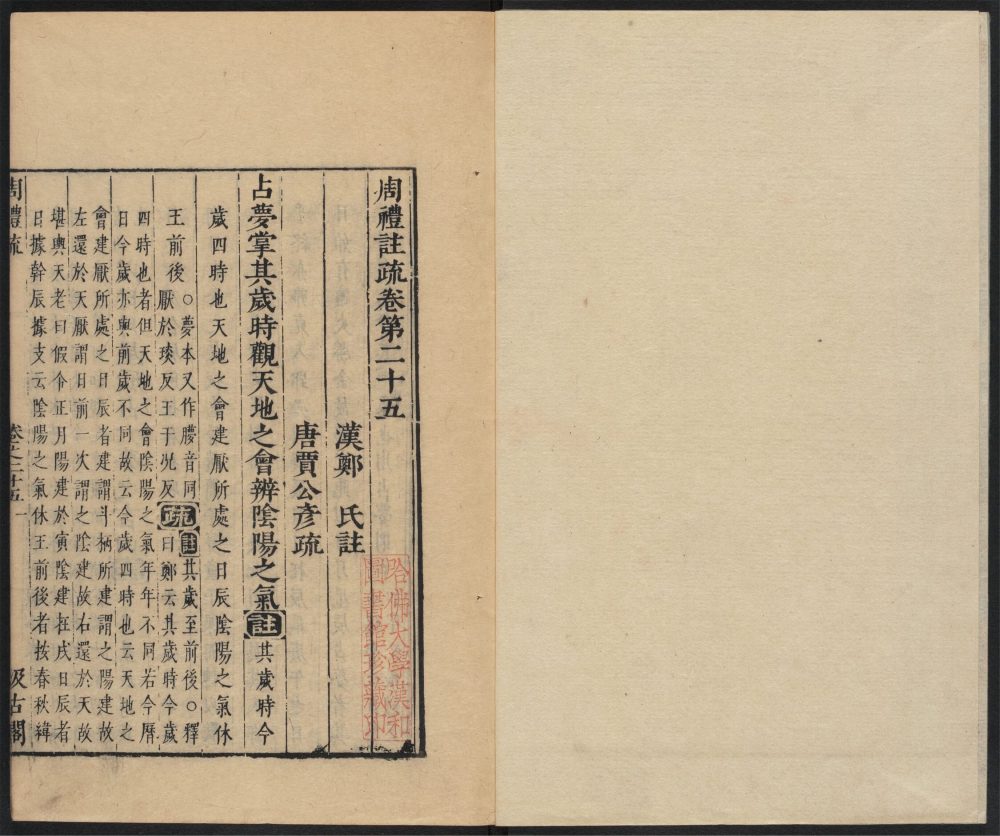 周禮註疏卷第二十五
漢鄭　氏註
唐賈公彥疏
哈佛大學漢和
圖書館珍藏印
占夢掌其歲時觀天地之會辨陰陽之氣註其歲時今
歲四時也天地之會建厭所處之日辰陰陽之氣休
王前後○夢本又作㝱音同
厭於琰反王于況反疏註其歲至前後○釋
曰鄭云其歲時今歲
四時也者但天地之會陰陽之氣年年不同若今曆
日今歲亦與前歲不同故云今歲四時也云天地之
會建厭所處之日辰者建謂斗柄所建謂之陽建故
左還於天厭謂日前一次謂之陰建故右還於天故
堪輿天老曰假令正月陽建於寅陰建在戌日辰者
日據幹辰據支云陰陽之氣休王前後者按春秋緯
周禮疏
卷之二十五
一
汲古閣